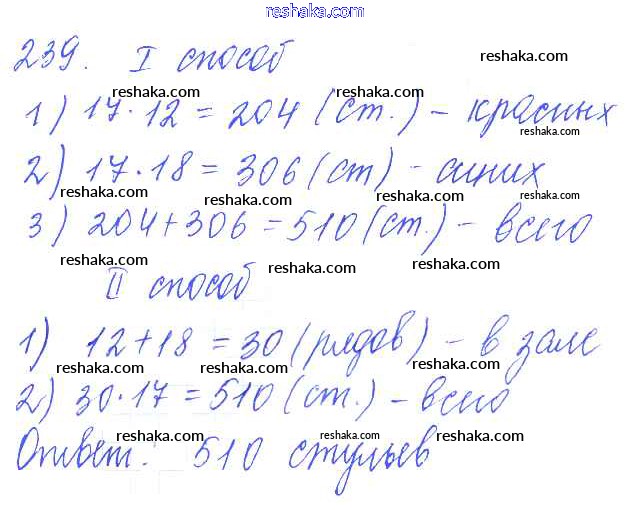 reshaka.com
239. I способ
reshaka.com
reshaka.com reshaka.com
1) 17·12 = 204 (ст.) - красных
reshaka.com reshaka.com
2) 17·18 = 306 (ст) - синих
reshaka.com reshaka.com
3) 204+306=510 (ст.) - всего
reshaka.com reshaka.com reshaka.com
II способ
reshaka.com reshaka.com
1) 12+18=30 (рядов) - в зале
reshaka.com reshaka.com reshaka.com
2) 30·17=510 (ст.) - всего
reshaka.com reshaka.com
Ответ. 510 стульев
reshaka.com reshaka.com